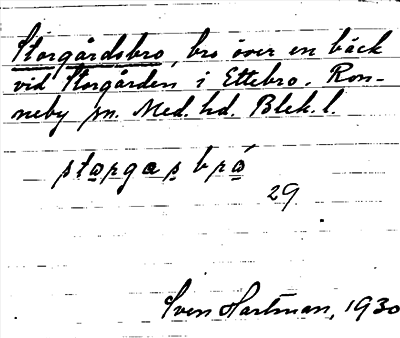 Storgårdsbro, bro över en bäck
vid Storgården i Ettebro. Ron-
neby sn. Med. hd. Blek. l.
29
Sven Hartman, 1930